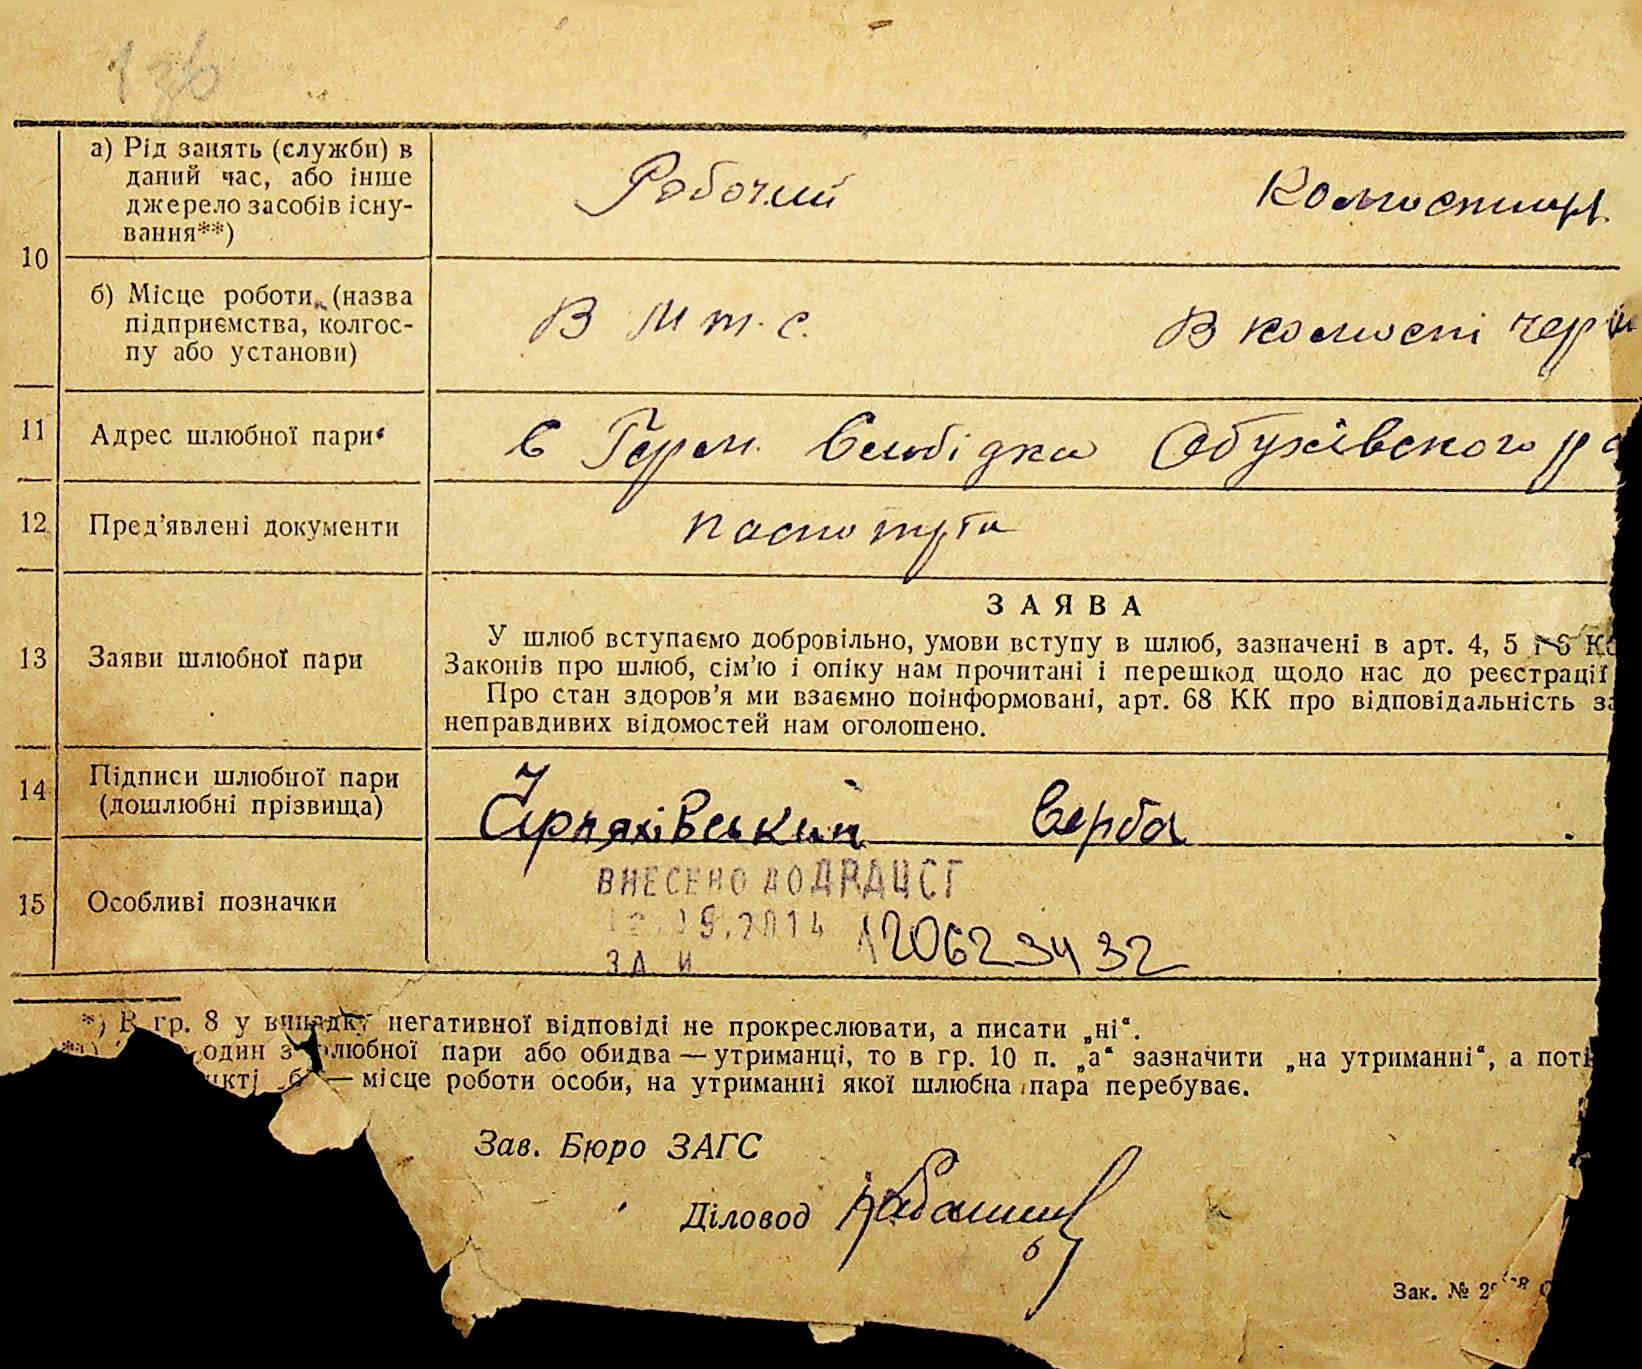 а) Рід занять (служби) в
даний час, або інше
джерело засобів існу-
вання**)
Робочий
10
б) Місце роботи (назва
підприємства, колгос-
пу або установи)
В М т. с.
В колгоспі
11
Адрес шлюбної пари
с Герм. Слобідка Обухівского
12
Пред’явлені документи
паспорта
ЗАЯВА
13
Заяви шлюбної пари
У шлюб вступаємо добровільно, умови вступу в шлюб, зазначені в арт. 4, 5 і 6
Законів про шлюб, сім’ю і опіку нам прочитані і перешкод щодо нас до реєстрації
Про стан здоров’я ми взаємно поінформовані, арт. 68 КК про відповідальність за
неправдивих відомостей нам оголошено.
14
Підписи шлюбної пари
(дошлюбні прізвища)
Черняхівський Верба
15
Особливі позначки
ВНЕСЕНО ДО ДРАЦСГ
.2014
*) В гр. 8 у випадку негативної відповіді не прокреслювати, а писати „ні“.
один з шлюбної пари або обидва — утриманці, то в гр. 10 п. „а“ зазначити „на утриманні“, а
„б“ — місце роботи особи, на утриманні якої шлюбна пара перебуває.
Зав. Бюро ЗАГС
Діловод
Зак. №